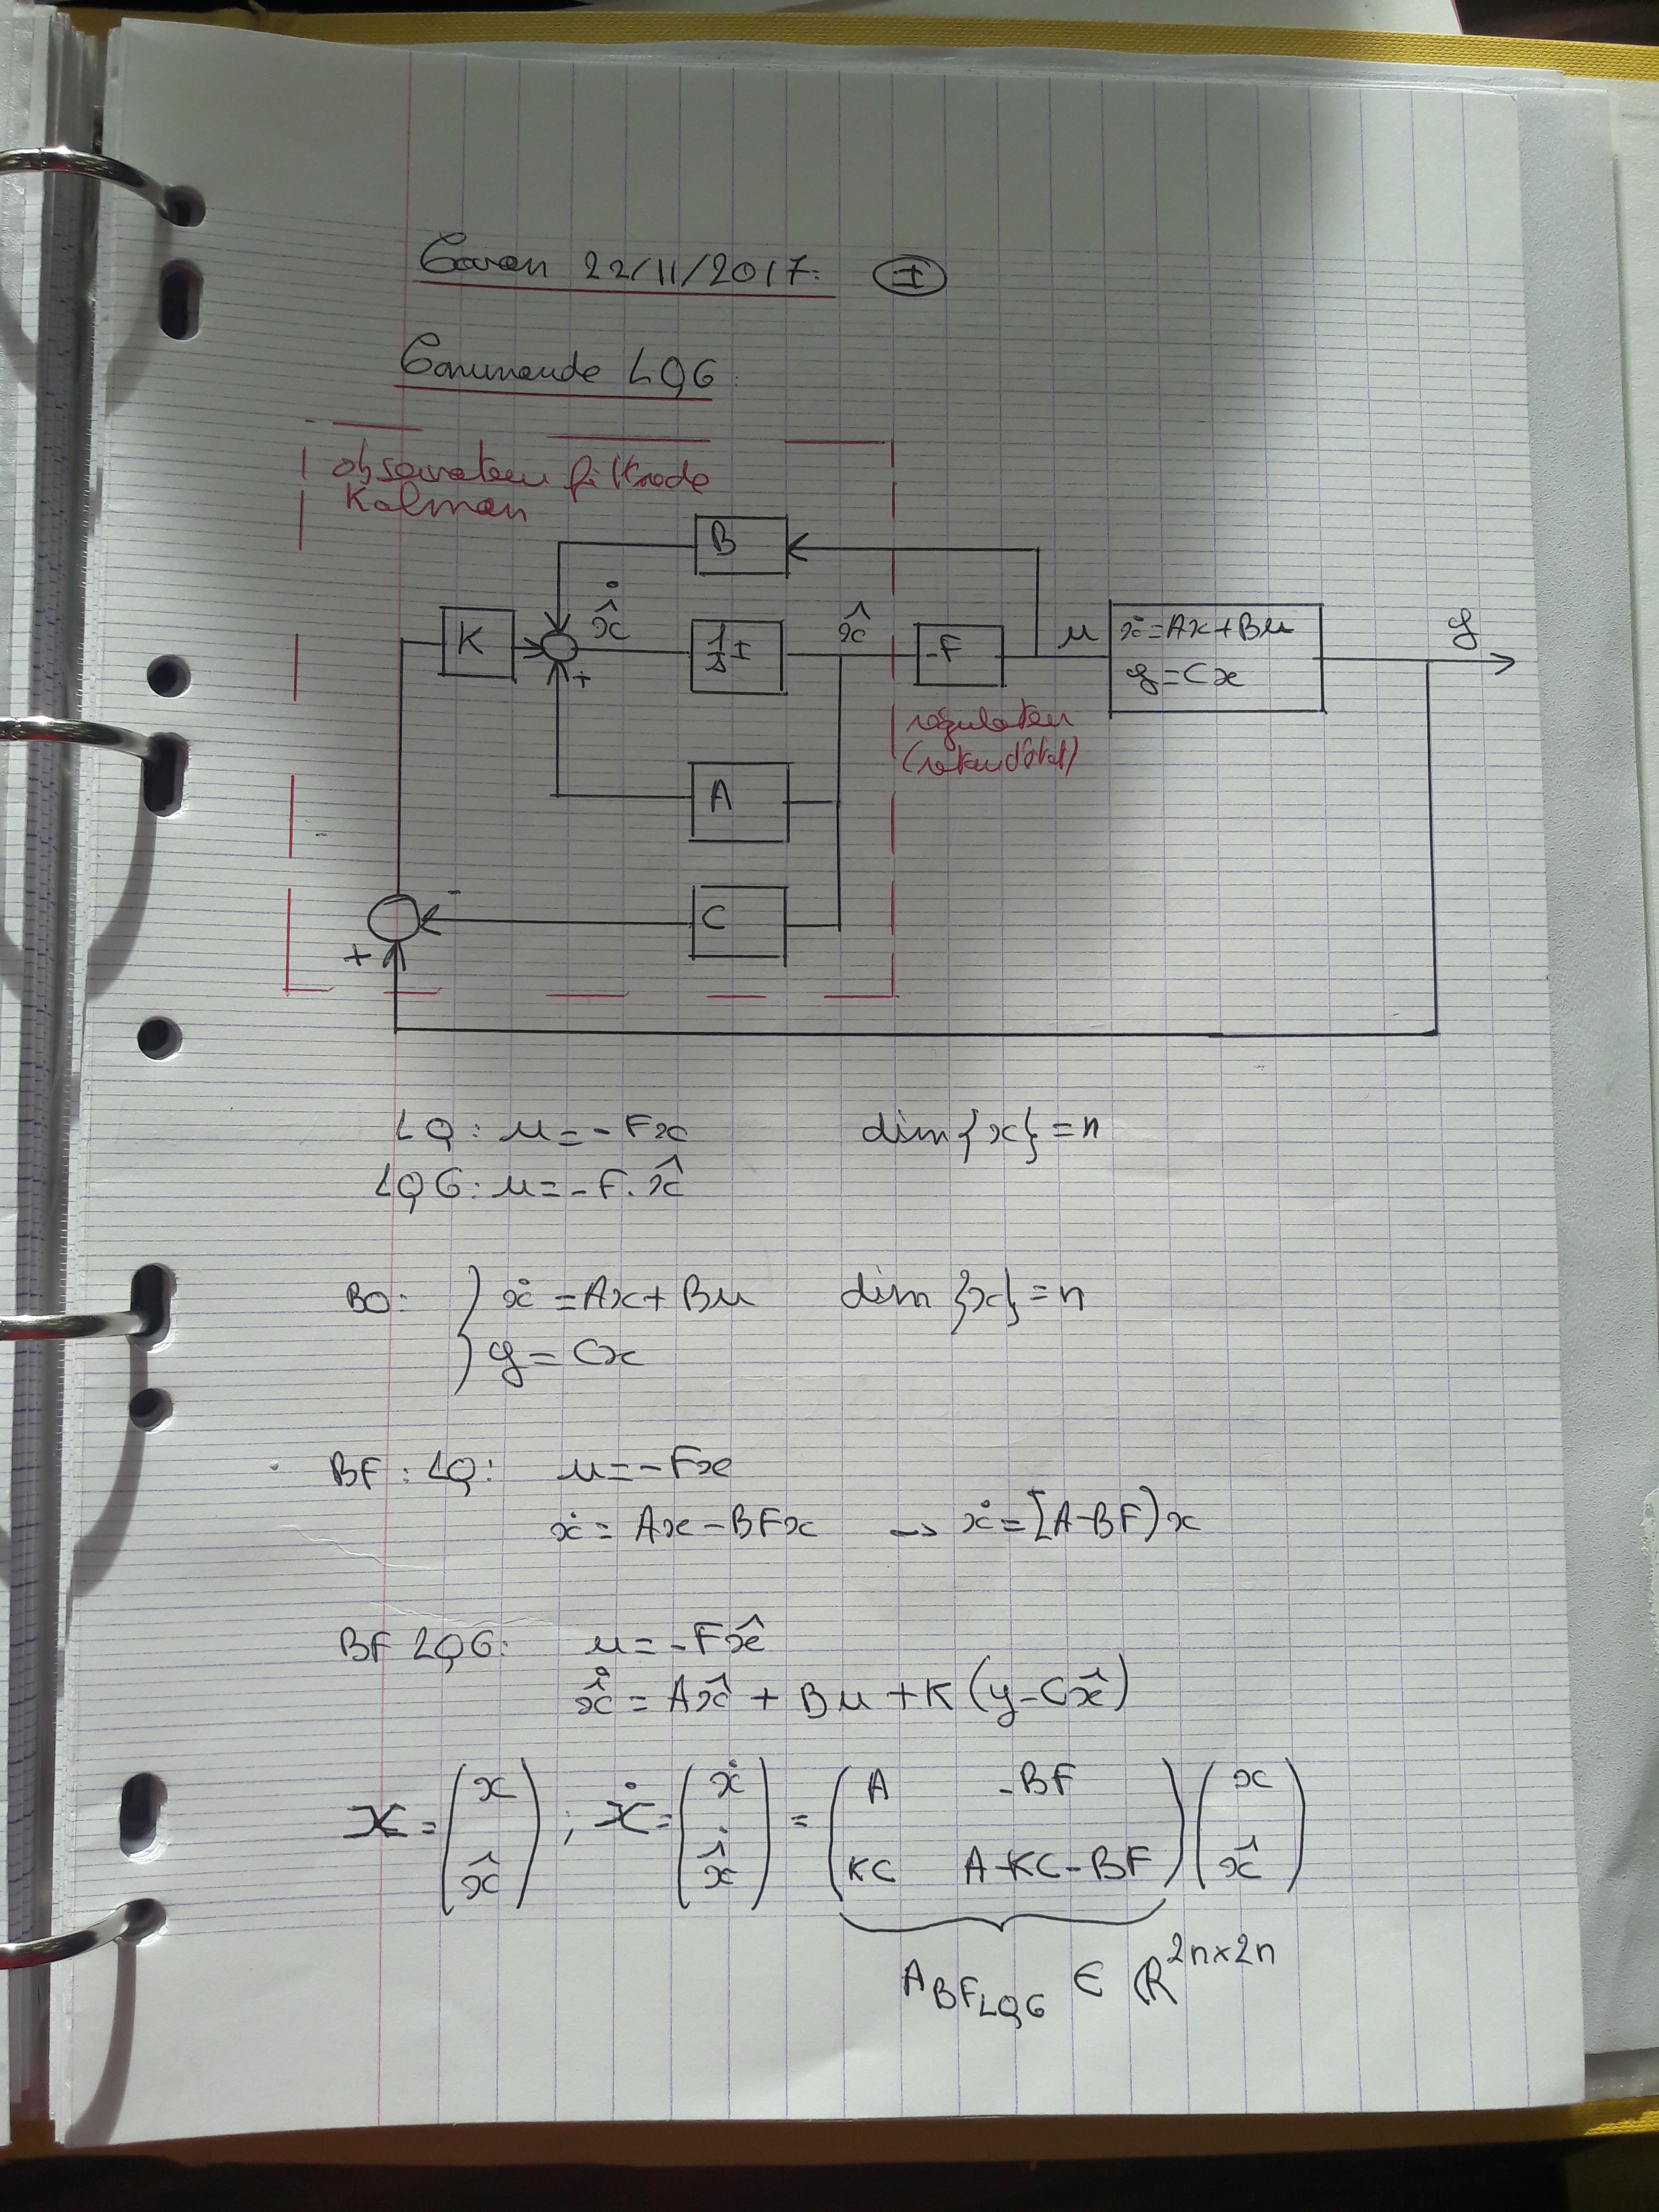 22/11/2017: I
Commande LQG
observateur filtre de
Kalman
B
K
ẋ̂
1/s I
x̂
-F
u
ẋ=Ax+Bu
y=Cx
y
+
régulateur
(retour d'état)
A
-
C
+
LQ: u=-Fx dim{x}=n
LQG: u=-F.x̂
BO: } ẋ=Ax+Bu dim{x}=n
y=Cx
BF: LQ: u=-Fx
ẋ=Ax-BFx → ẋ=[A-BF)x
BF LQG: u=-Fx̂
ẋ̂=Ax̂+Bu+K(y-Cx̂)
X=(x ; x̂) ; Ẋ=(ẋ ; ẋ̂)=(A -BF ; KC A-KC-BF)(x ; x̂)
A_BF_LQG ∈ ℝ^2n×2n